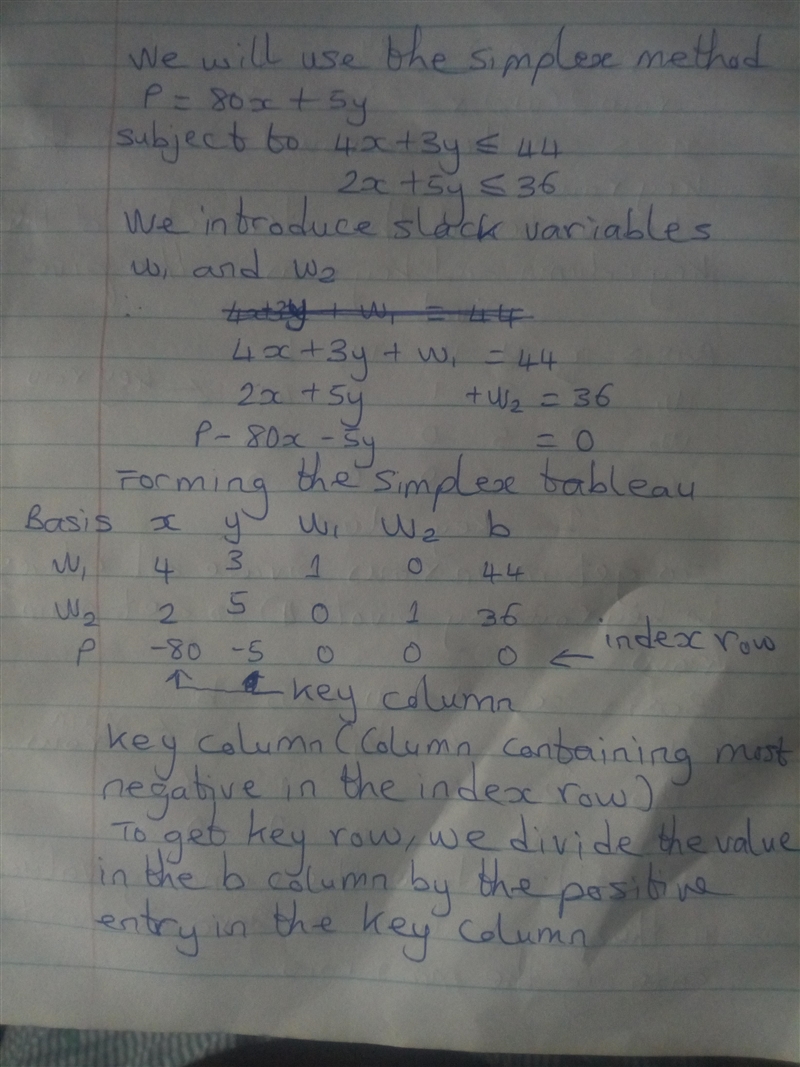 We will use the simplex method
P = 80x + 5y
subject to 4x+3y ≤ 44
2x +5y ≤ 36
We introduce slack variables
w₁ and w₂
∴ 4x+3y + w₁ = 44
4x + 3y + w₁ = 44
2x + 5y +w₂ = 36
P - 80x - 5y = 0
Forming the simplex tableau
Basis x y w₁ w₂ b
w₁ 4 3 1 0 44
w₂ 2 5 0 1 36
P -80 -5 0 0 0 ← index row
↑ key column
key column (column containing most
negative in the index row)
To get key row, we divide the value
in the b column by the positive
entry in the key column